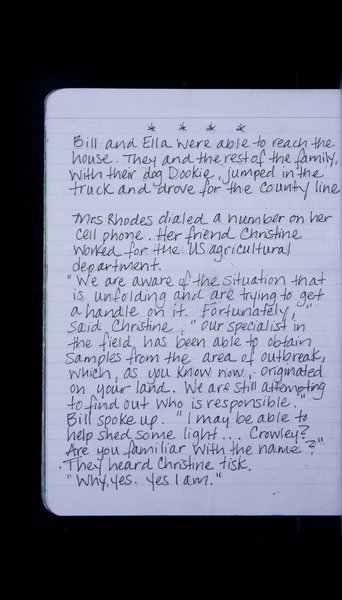 * * * *
Bill and Ella were able to reach the
house. They and the rest of the family,
with their dog Dookie, jumped in the
truck and drove for the county line
Mrs Rhodes dialed a number on her
cell phone. Her friend Christine
worked for the US agricultural
department.
"We are aware of the situation that
is unfolding and are trying to get
a handle on it. Fortunately,"
said Christine, "Our specialist in
the field, has been able to obtain
samples from the area of outbreak,
which, as you know now, originated
on your land. We are still attempting
to find out who is responsible."
Bill spoke up. "I may be able to
help shed some light... Crowley?
Are you familiar with the name?"
They heard Christine tisk.
"Why, yes. Yes I am."